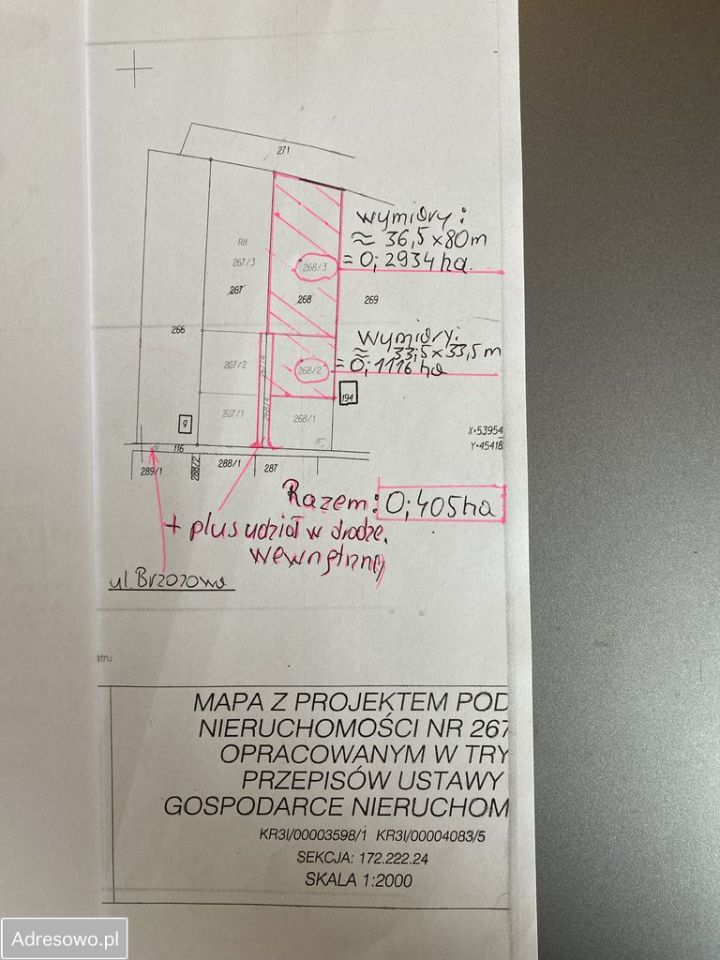 271
wymiary:
≈ 36,5 x 80m
= 0,2934 ha.
RII
267/3
267
268/3
268
269
266
Wymiary:
≈ 33,5 x 33,5 m
= 0,1116 ha
267/2
267/4
268/2
194
267/1
268/4
268/1
g
X=53954
Y=45418
116
289/1
288/2
288/1
287
Razem: 0,405ha
+ plus udział w drodze.
wewnętrznej
ul. Brzozowa
atru
MAPA Z PROJEKTEM POD
NIERUCHOMOŚCI NR 267
OPRACOWANYM W TRY
PRZEPISÓW USTAWY
GOSPODARCE NIERUCHOM
KR3I/00003598/1 KR3I/00004083/5
SEKCJA: 172.222.24
SKALA 1:2000
Adresowo.pl